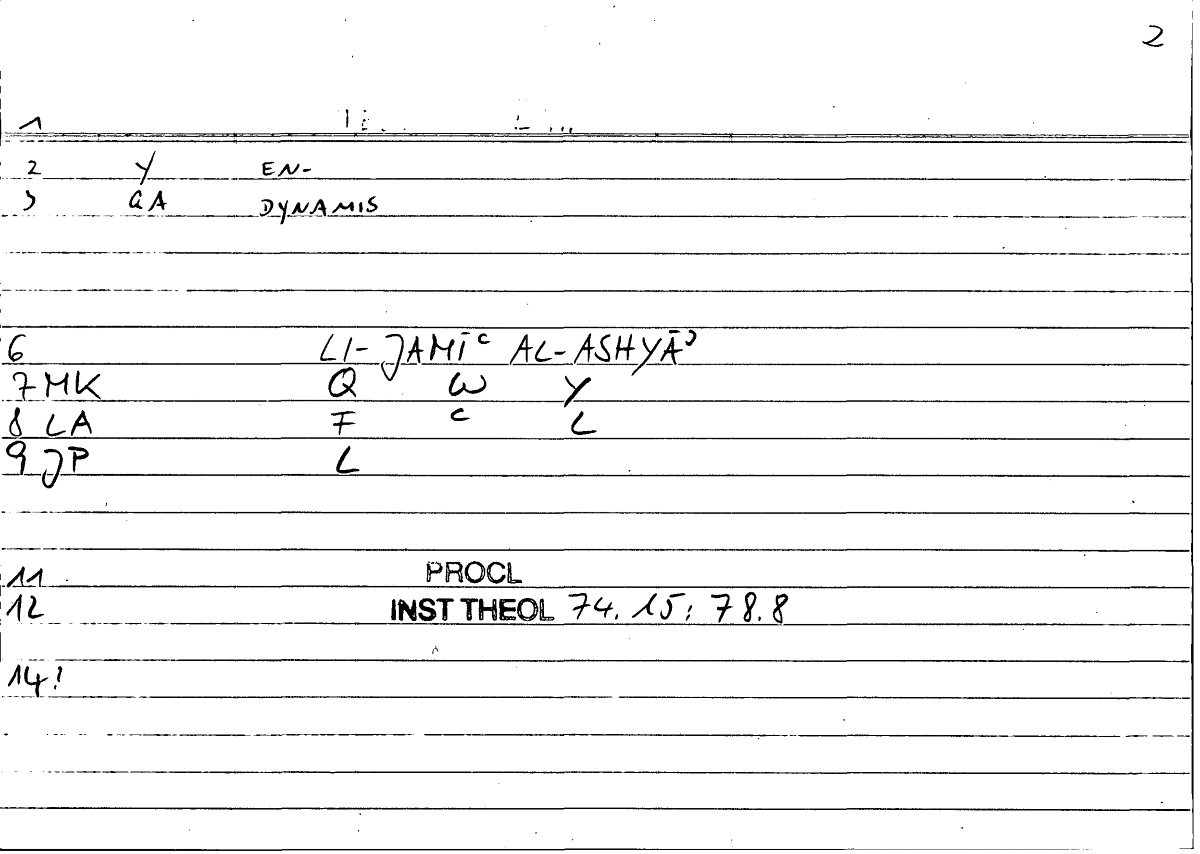 2
1
2 Y EN-
3 QA DYNAMIS
6 LI-JAMĪʿ AL-ASHYĀʾ
7 MK Q W Y
8 LA F ʿ L
9 JP L
11 PROCL
12 INST THEOL 74. 15; 78.8
14!